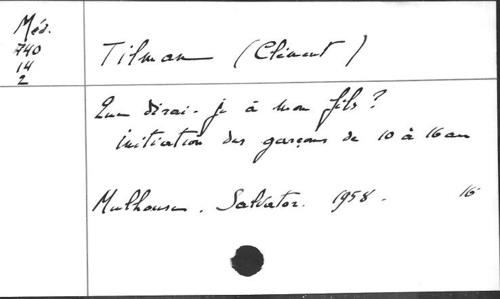 Méd.
740
14
2
Tilman (Clément)
Que dirai-je à mon fils?
initiation des garçons de 10 à 16 ans
Mulhouse. Salvator. 1958. 16